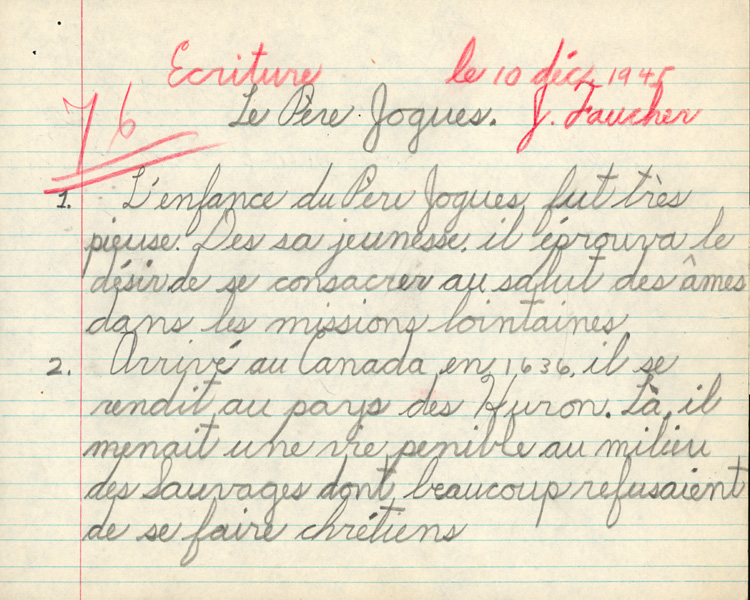 Ecriture le 10 déc, 1945
76
Le Père Jogues. J. Faucher
1. L'enfance du Père Jogues, fut très
pieuse. Des sa jeunesse, il éprouva le
désir de se consacrer au salut des âmes
dans les missions lointaines.
2. Arrivé au Canada, en 1,636, il se
rendit au pays des Huron. Là, il
menait une vie penible au milieu
des Sauvages dont, beaucoup refusaient
de se faire chrétiens